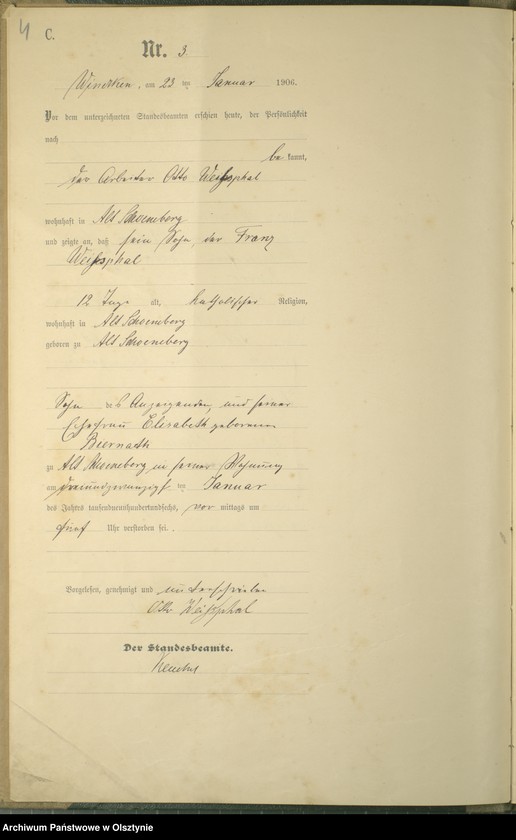 4
C.
Nr. 3.
am 23 ten Januar 1906.
Vor dem unterzeichneten Standesbeamten erschien heute, der Persönlichkeit
nach
be kannt,
der Arbeiter Otto
wohnhaft in Alt Schoeneberg
und zeigte an, daß sein Sohn, der Franz
12 Tage alt, katholischer Religion,
wohnhaft in Alt Schoeneberg
geboren zu Alt Schoeneberg
Sohn des Anzeigenden, und seiner
Ehefrau Elisabeth geborenen
Biernath
zu Alt Schoeneberg in seiner Wohnung
am dreiundzwanzigsten ten Januar
des Jahres tausendneunhundertundsechs, vor mittags um
fünf Uhr verstorben sei.
Vorgelesen, genehmigt und unterschrieben
Otto
Der Standesbeamte.
Archiwum Państwowe w Olsztynie